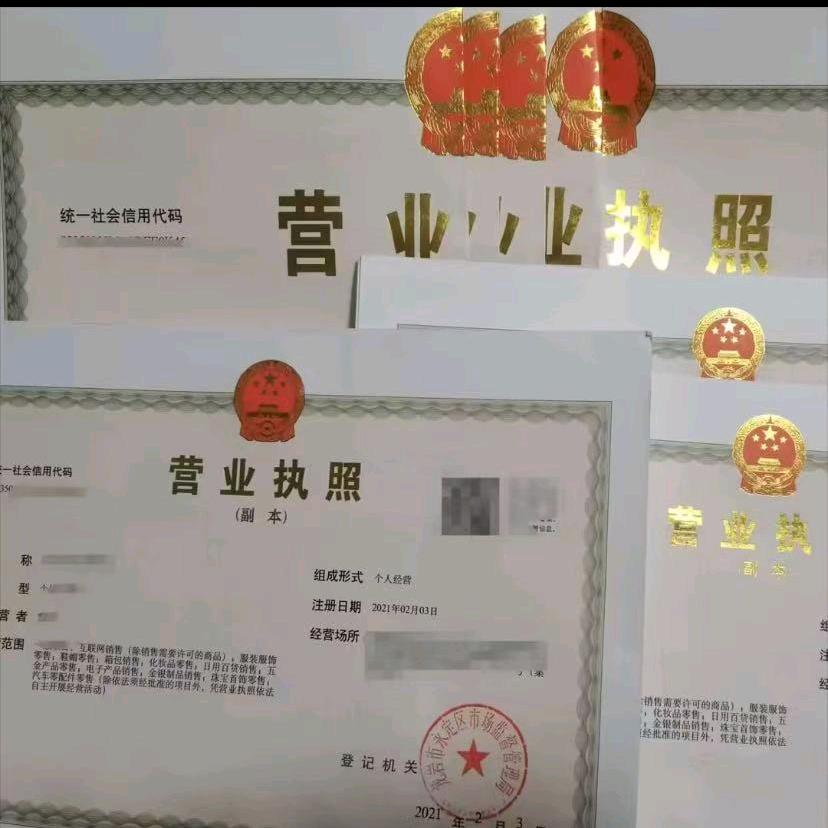 统一社会信用代码
营业执照
统一社会信用代码
350
营业执照
(副 本)
称
型 个
营者
范围
互联网销售(除销售需要许可的商品);服装服饰
零售;鞋帽零售;箱包销售;化妆品零售;日用百货销售;五
金产品零售;电子产品销售;金银制品销售;珠宝首饰零售;
汽车零配件零售(除依法须经批准的项目外,凭营业执照依法
自主开展经营活动)
组成形式 个人经营
注册日期 2021年02月03日
经营场所
登记机关
龙岩市永定区市场监督管理局
2021 年 2 月 3 日
营业执
副 本
销售需要许可的商品);服装服饰
;化妆品零售;日用百货销售;五
;金银制品销售;珠宝首饰零售;
须经批准的项目外,凭营业执照依法
组
注
经